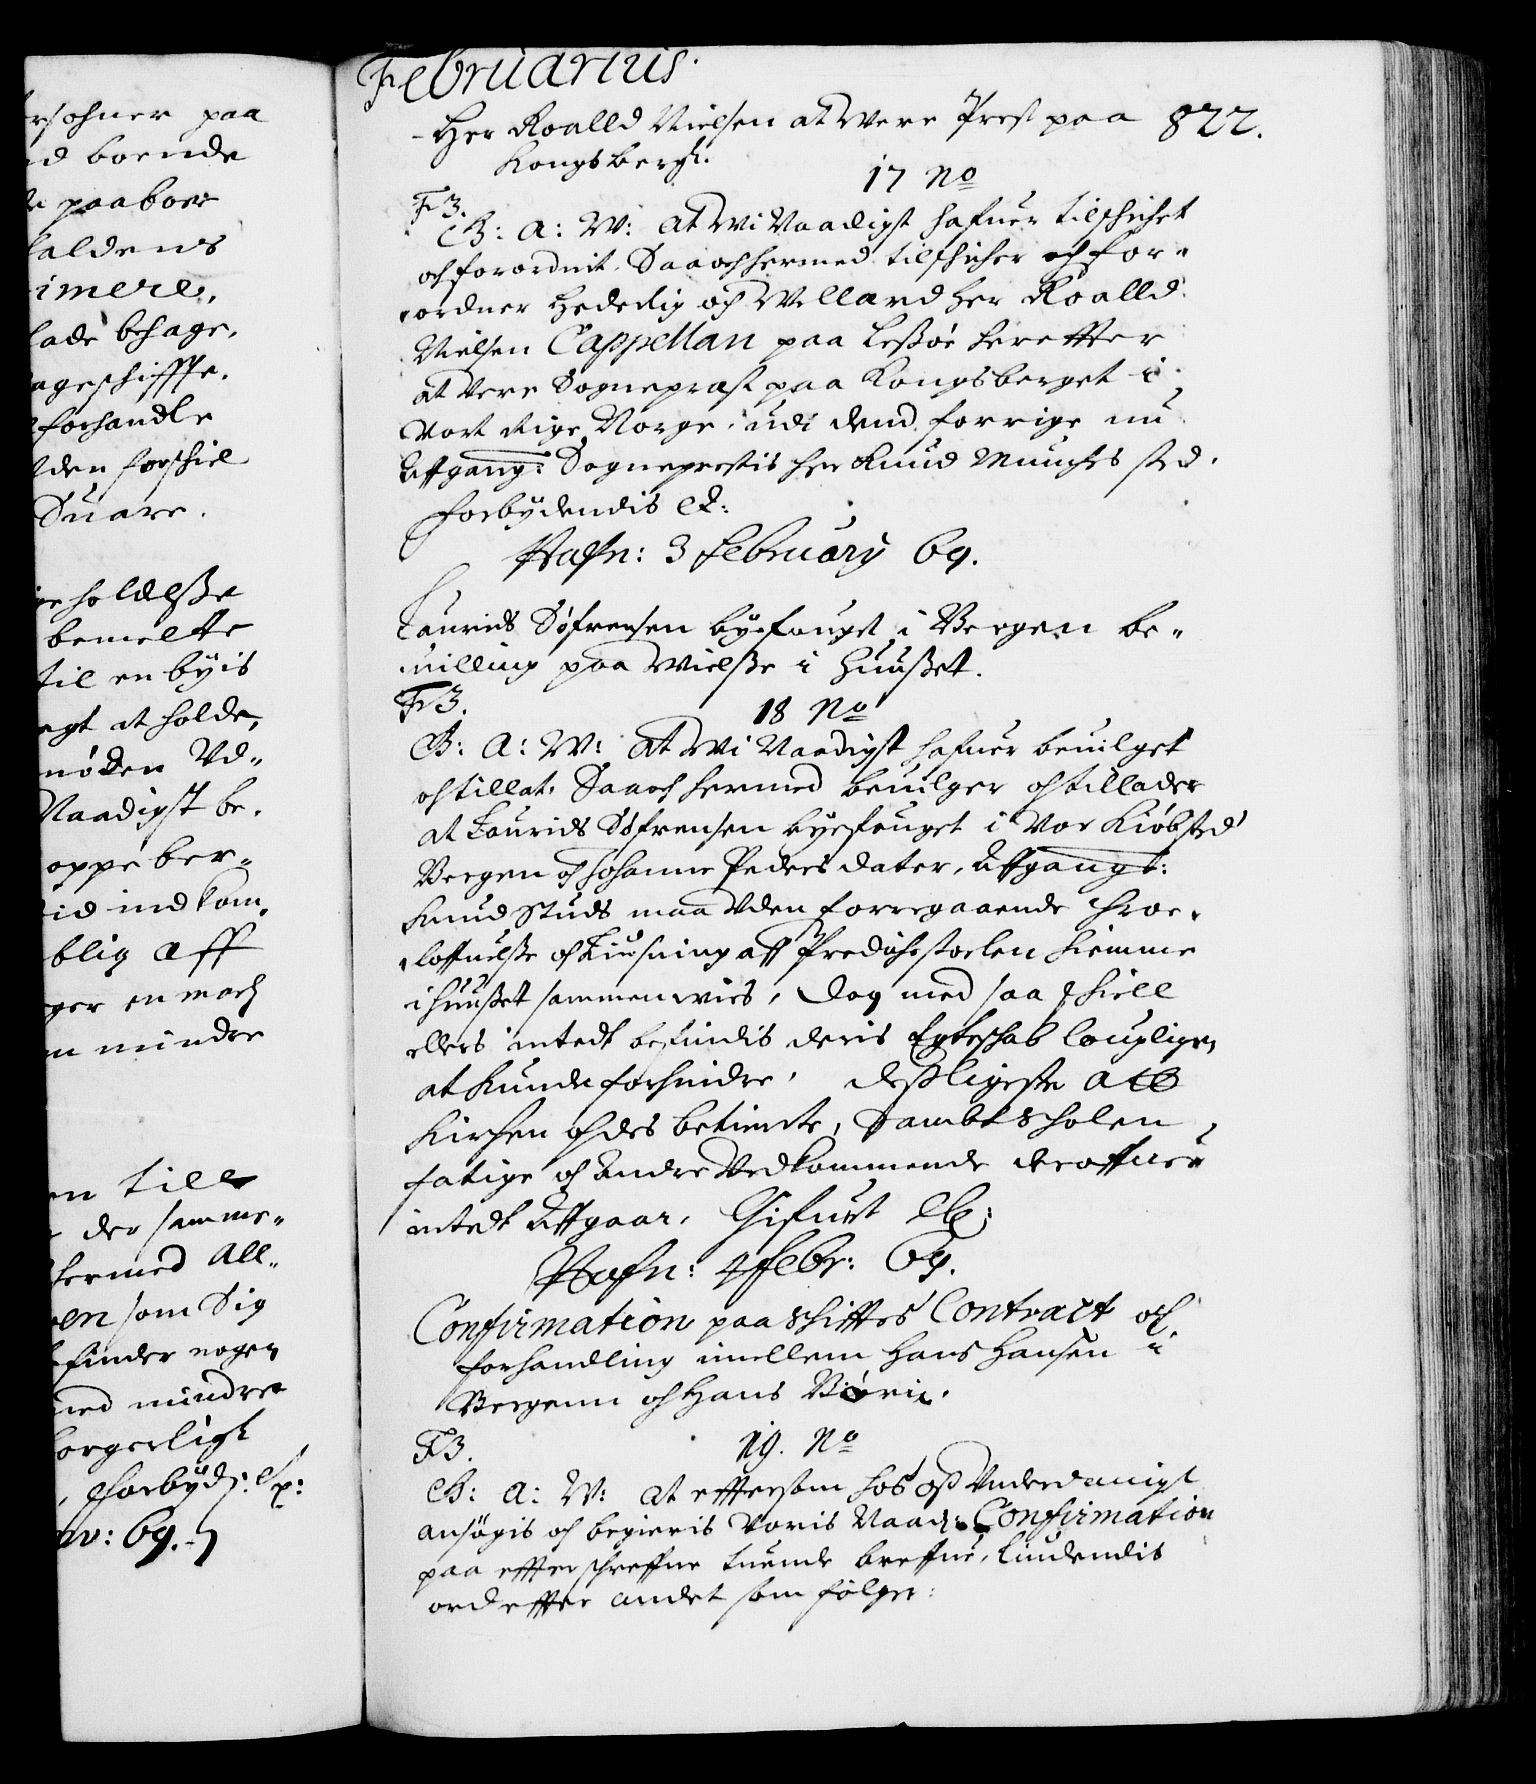 rsohner paa
d boende
paaboe
aldens
imere,
lade behage,
ageschifffe.
forhandle
den forschiel
Suare.
holdelsse
bemelte
til en byis
egt at holde,
nøden Vd-
Naadigst be-
oppe ber-
id indkom-
blig aff
ger en march
mindre
en till
der samme-
hermed All-
en som Sig
befinder nogen
med mindre
borgerligt
, Forbyd:
69.
Februarius.
Her Roalld Nielsen at Were Prest paa
822.
Kongsbergh.
17 No
F3.
G: A: W: At Wi Naadigst hafuer tilschichet
och forordnit, Saa och hermed tilschicher och for-
ordner Hederlig och Wellærd Her Roalld
Nielsen Cappellan paa Lessøe herefter
at Vere Sogneprest paa Kongsberget i
Vort Rige Norge, udi dend forrige nu
Affgang: Sogneprestis her Knud Munchs sted.
Forbydendis etc:
Hafn: 3 February 69.
Laurids Søfrensen byefouget i Bergen be-
uilling paa Wielsse i Huusset.
F3.
18 No
G: A: W: At Wi Naadigst hafuer beuilget
och tillat, Saa och hermed beuilger och tillader
at Laurids Søfrensen byefouget i Vor Kiøbsted
Bergen och Johanne Peders dater, Affgangt:
Knud Studs maa Vden forregaaende throe-
loffuelsse och Liusning aff Predichestoelen hiemme
i huusset sammenwies, Dog med saa skiell
ellers intedt befindis deris Egteschab loupligen
at kunde forhindre, desligeste att
Kirchen och des betiente, Sambt Scholen,
fatige och andre Vedkommende deroffuer
intedt Affgaar, Gifuet etc:
Hafn: 4 Febr: 69.
Confirmation paa schifftes Contract och
forhandling imellem Hans Hansen i
Bergenn och Hans
F3.
19. No
G: A: W: At effersom hos oss Vnderdanigst
ansøgis och begieris Voris Naad: Confirmation
paa effterschreffne tuende breffue, Liudendis
ord effter andet som følger: